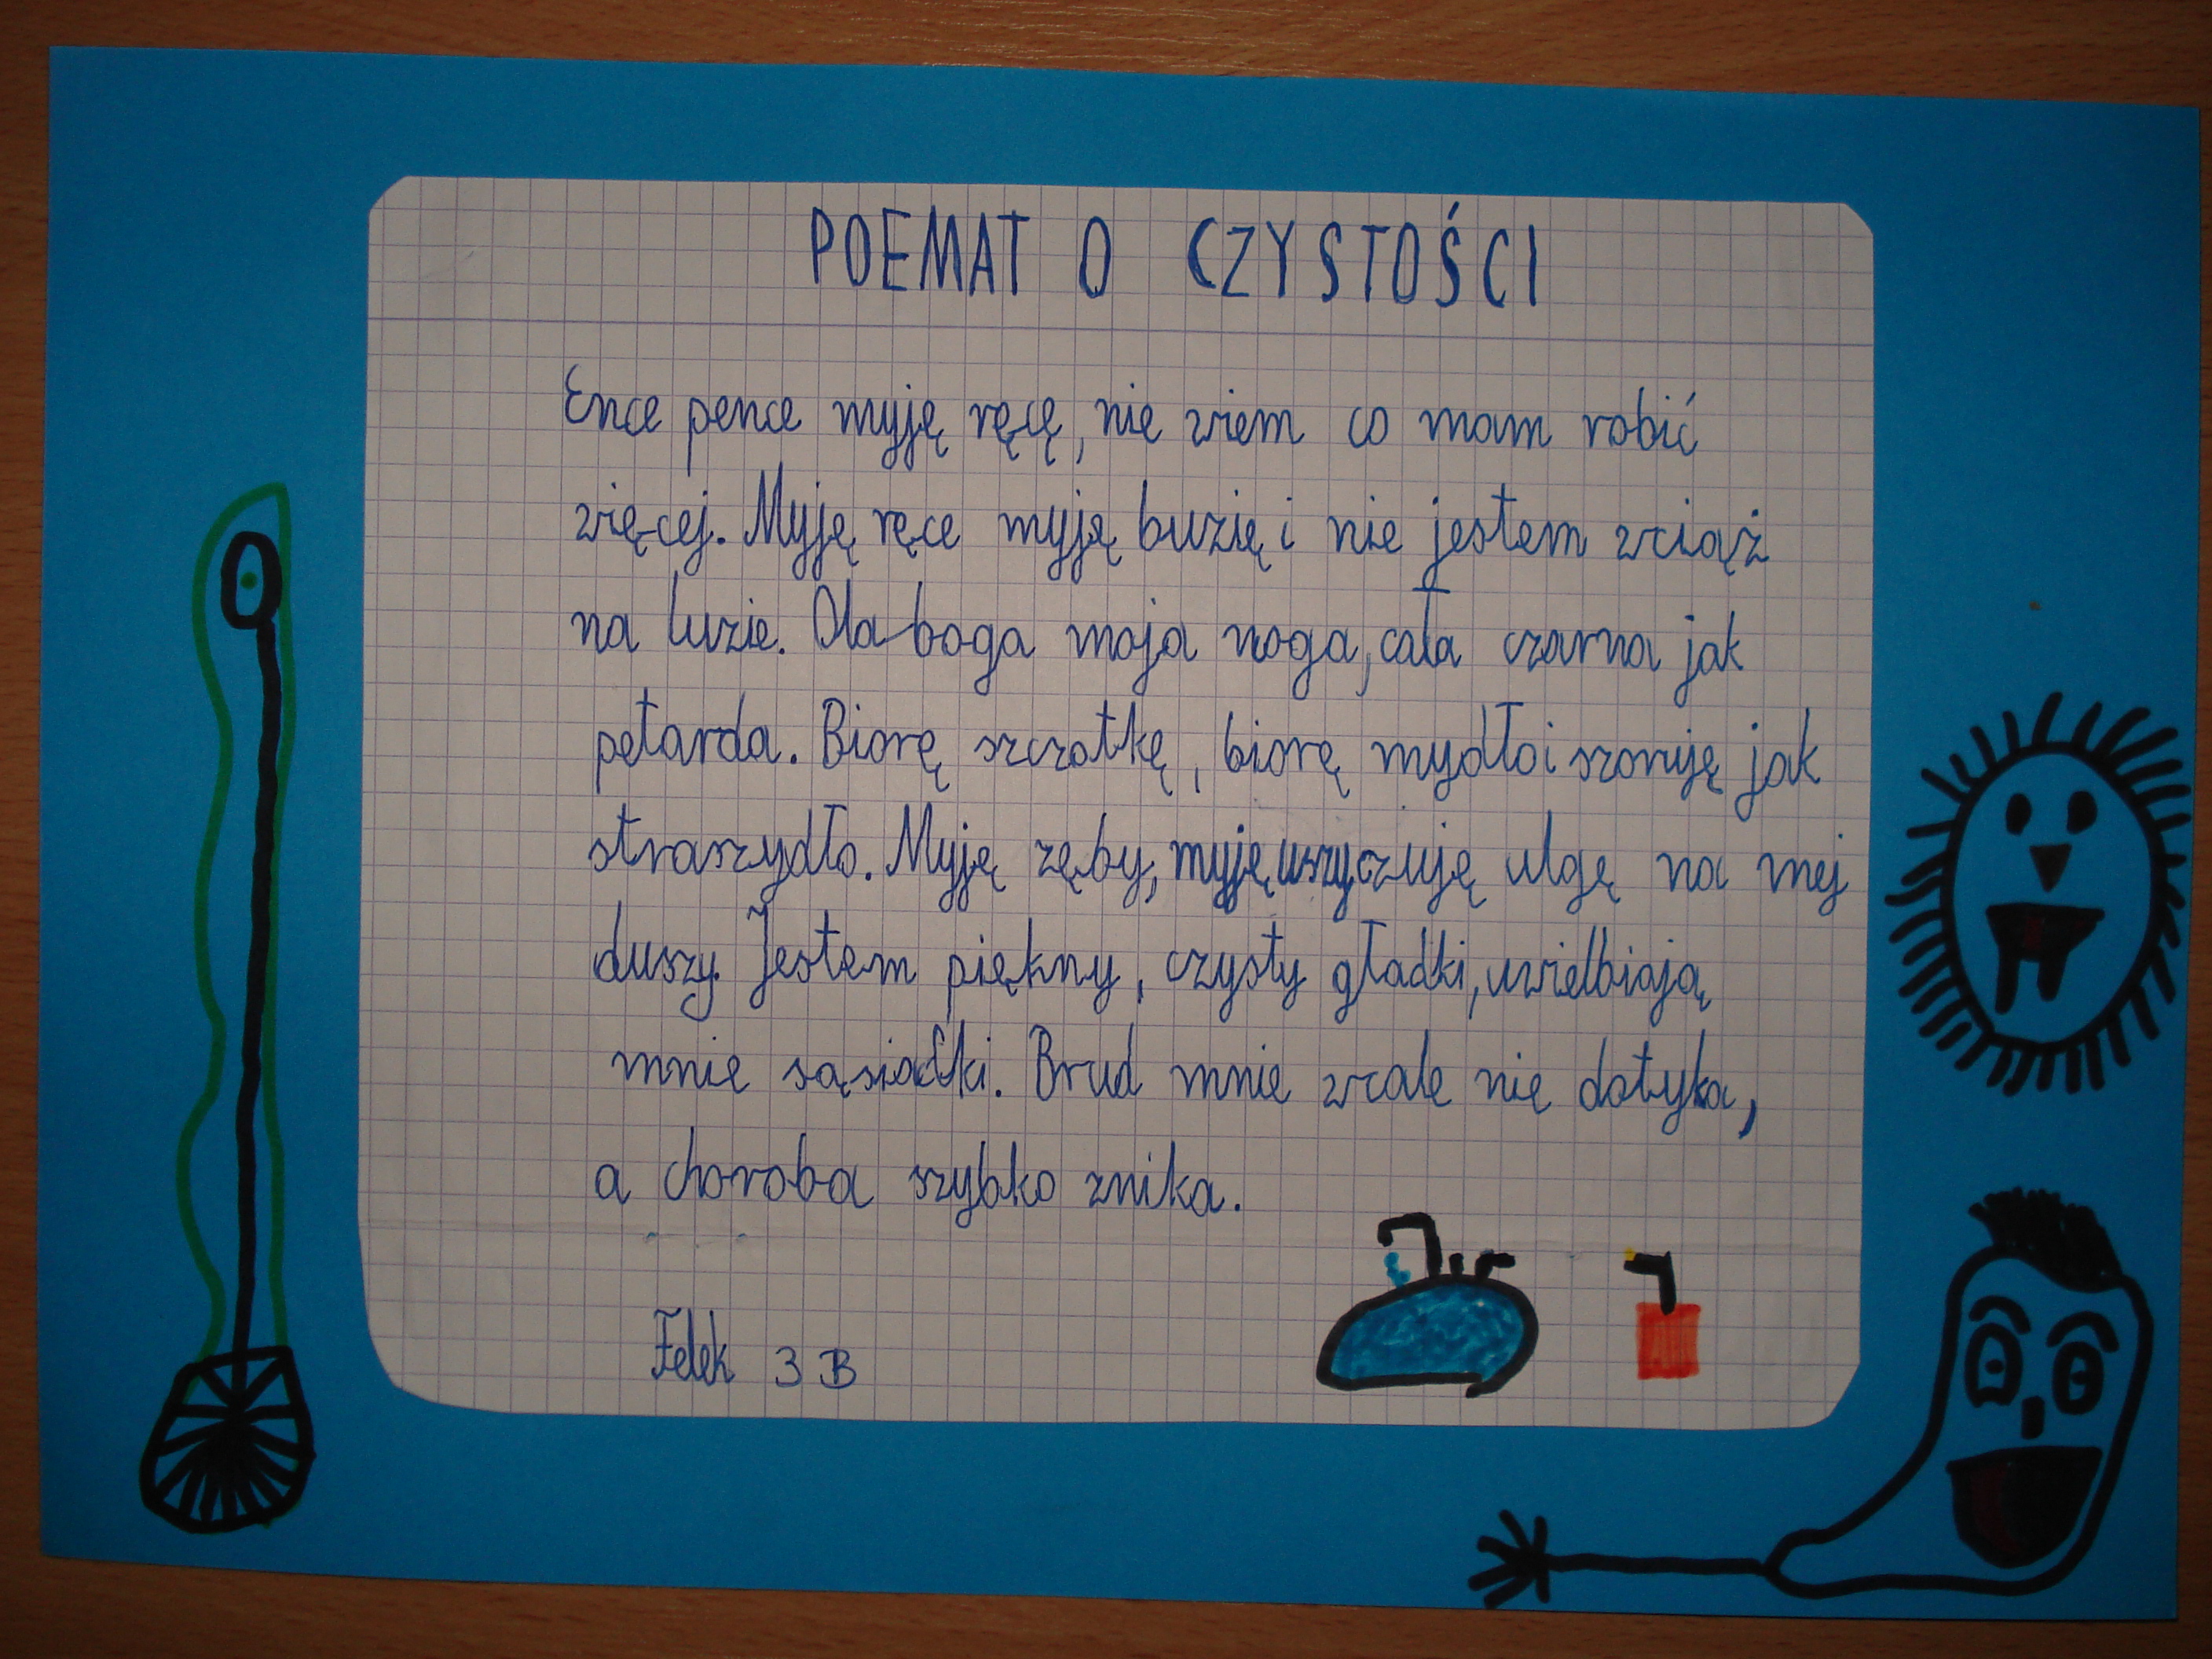 POEMAT O CZYSTOŚCI
Ence pence myję ręcę, nie wiem co mam robić
więcej. Myję ręce myję buzię i nie jestem wciąż
na luzie. Ola boga moja noga, cała czarna jak
petarda. Biorę szczotkę, biorę mydło i szoruję jak
straszydło. Myję zęby, myję uszy czuję ulgę na mej
duszy. Jestem piękny, czysty gładki, uwielbiają
mnie sąsiadki. Brud mnie wcale nie dotyka,
a choroba szybko znika.
Felek 3 B